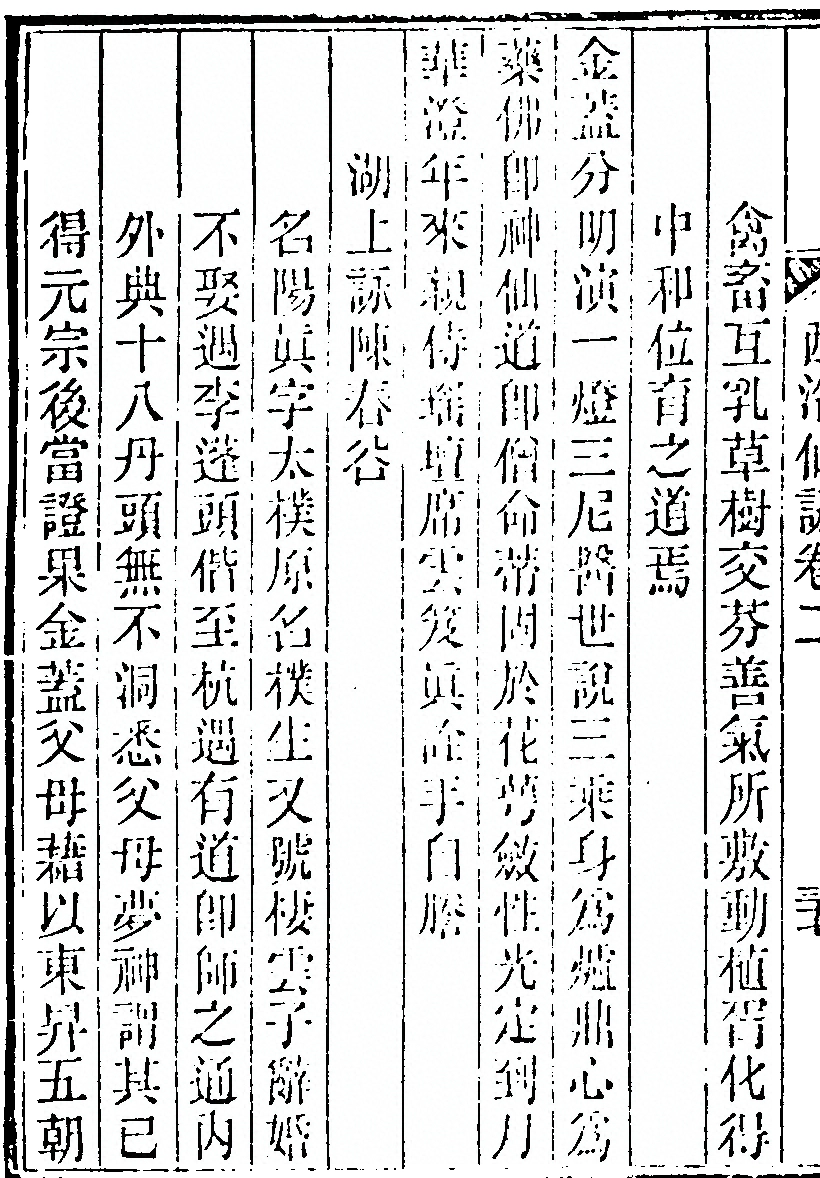 西泠仙詠卷二 三
禽畜互乳草樹交芬善氣所敷動植胥化得
中和位育之道焉
金蓋分明演一燈三尼醫世說三乘身為爐鼎心為
藥佛即神仙道即僧命蒂固於花萼斂性光定到月
華澄年來親侍瑤壇席雲笈眞詮手自謄
湖上詠陳春谷
名陽眞字太樸原名樸生又號棲雲子辭婚
不娶遇李蓬頭偕至杭遇有道卽師之通內
外典十八丹頭無不洞悉父母夢神謂其已
得元宗後當證果金蓋父母藉以東昇五朝